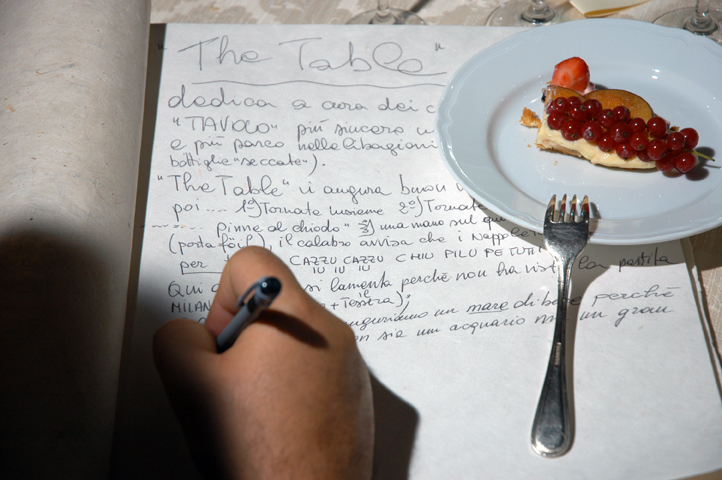 "The Table"
dedica a cura dei
"TAVOLO" più sincero
e più parco nelle libagioni
bottiglie "seccate").
"The Table" vi augura buon
poi .... 1°) Tornate insieme 2°) Tornate
Pinne al chiodo" 3°) una mano sul
(porta fò..), il calabro avvisa che i
per CAZZU CAZZU CHIU PILU PE TUTTI
IU IU IU
Qui si lamenta perché non ha la partita
MILAN + Tessera);
auguriamo un mare di perché
non sia un acquario ma un gran